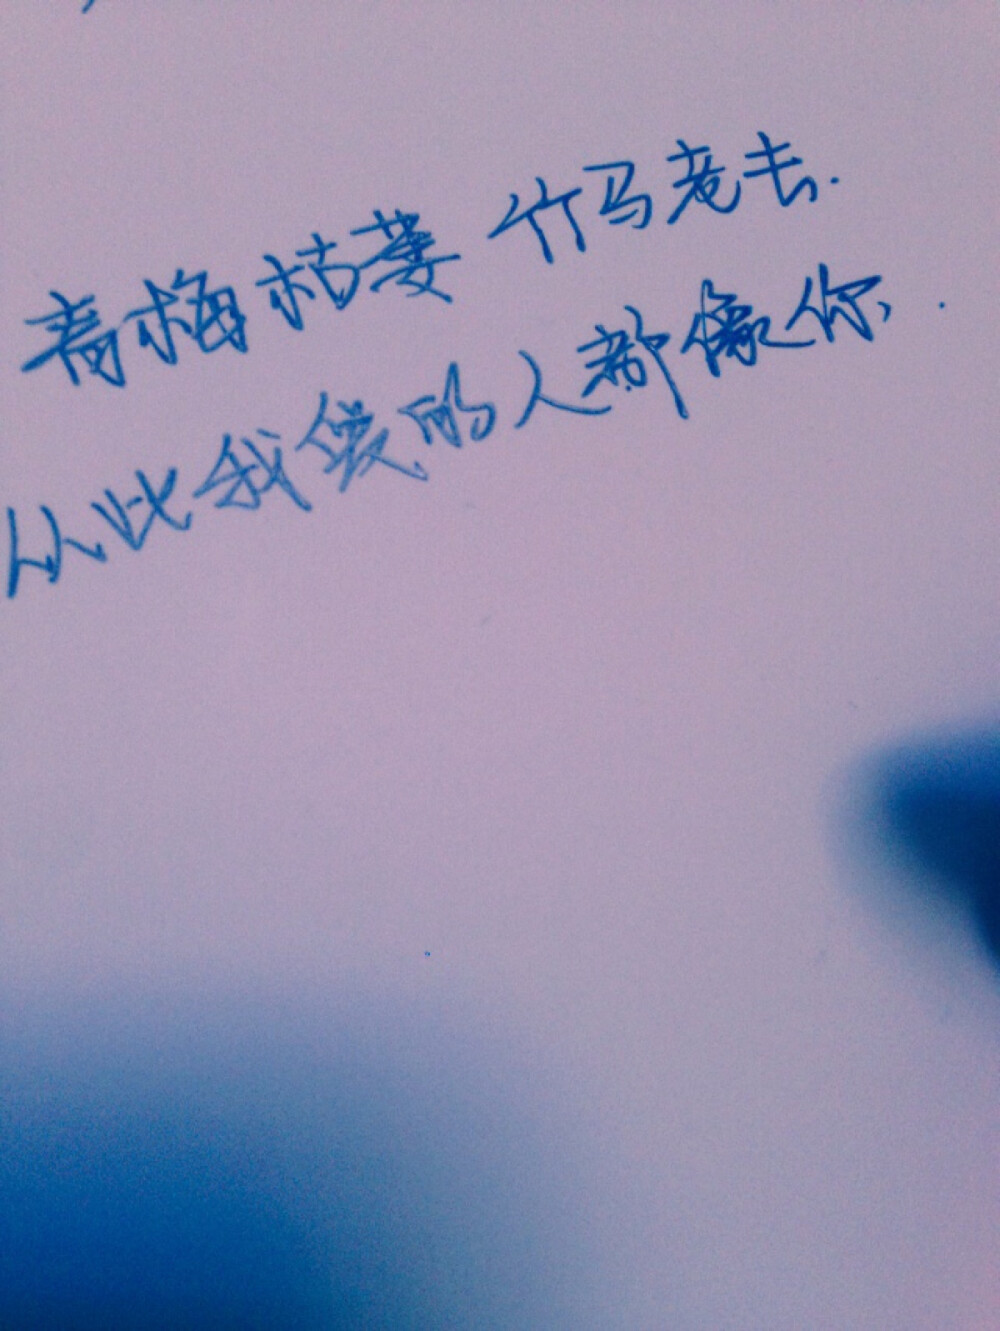 青梅枯萎 竹马老去.
从此我爱的人都像你.